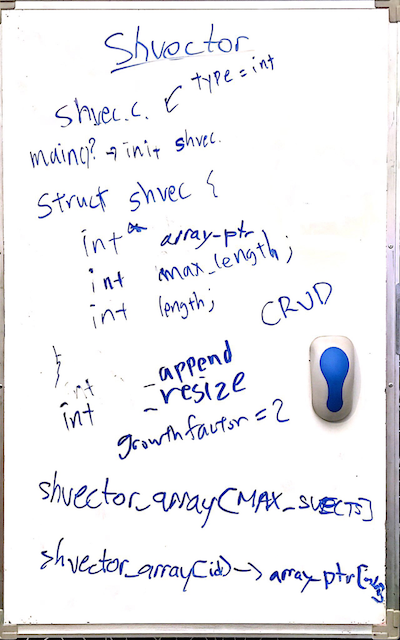 Shvector
shvec.c. type = int
main()? → init shvec.
struct shvec {
int* array_ptr
int max_length;
int length;
CRUD
}
int - append
int - resize
growth factor = 2
shvector_array[MAX_SVECTS]
shvector_array(id) -> array_ptr[